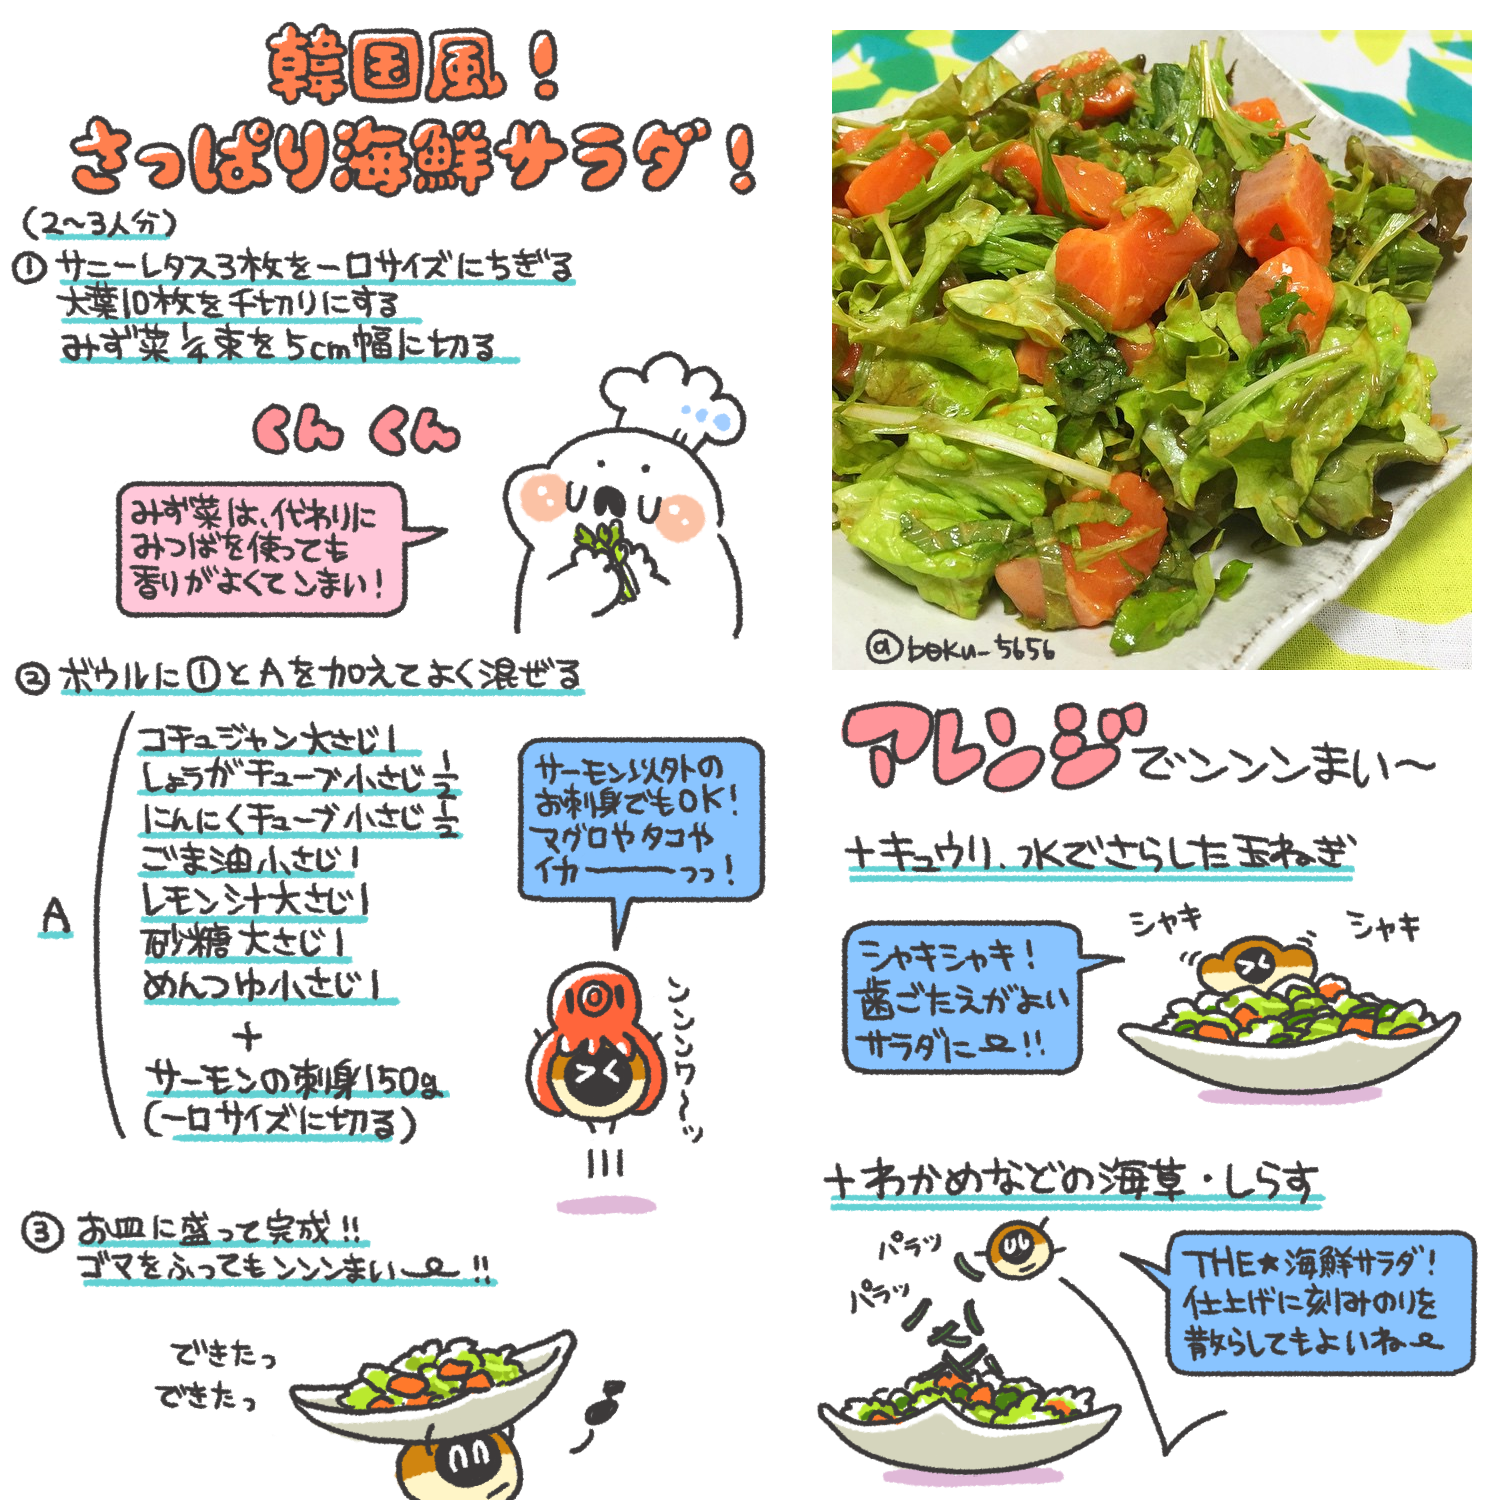 韓国風！
さっぱり海鮮サラダ！
（2〜3人分）
① サニーレタス3枚を一口サイズにちぎる
大葉10枚を千切りにする
みず菜 1/4 束を 5cm幅に切る
くん くん
みず菜は、代わりに
みつばを使っても
香りがよくてンまい！
② ボウルに①とAを加えてよく混ぜる
A
コチュジャン大さじ1
しょうがチューブ小さじ1/2
にんにくチューブ小さじ1/2
ごま油小さじ1
レモン汁大さじ1
砂糖 大さじ1
めんつゆ小さじ1
＋
サーモンの刺身150g
（一口サイズに切る）
サーモン以外の
お刺身でもOK！
マグロやタコや
イカ――っっ！
ンンンワ〜〜ッ
③ お皿に盛って完成!!
ゴマをふってもンンンまい〜!!
できたっ
できたっ
@boku_5656
アレンジでンンンまい〜
＋キュウリ、水でさらした玉ねぎ
シャキ シャキ
シャキシャキ！
歯ごたえがよい
サラダに〜!!
＋わかめなどの海草・しらす
パラッ
パラッ
THE★海鮮サラダ！
仕上げに刻みのりを
散らしてもよいね〜